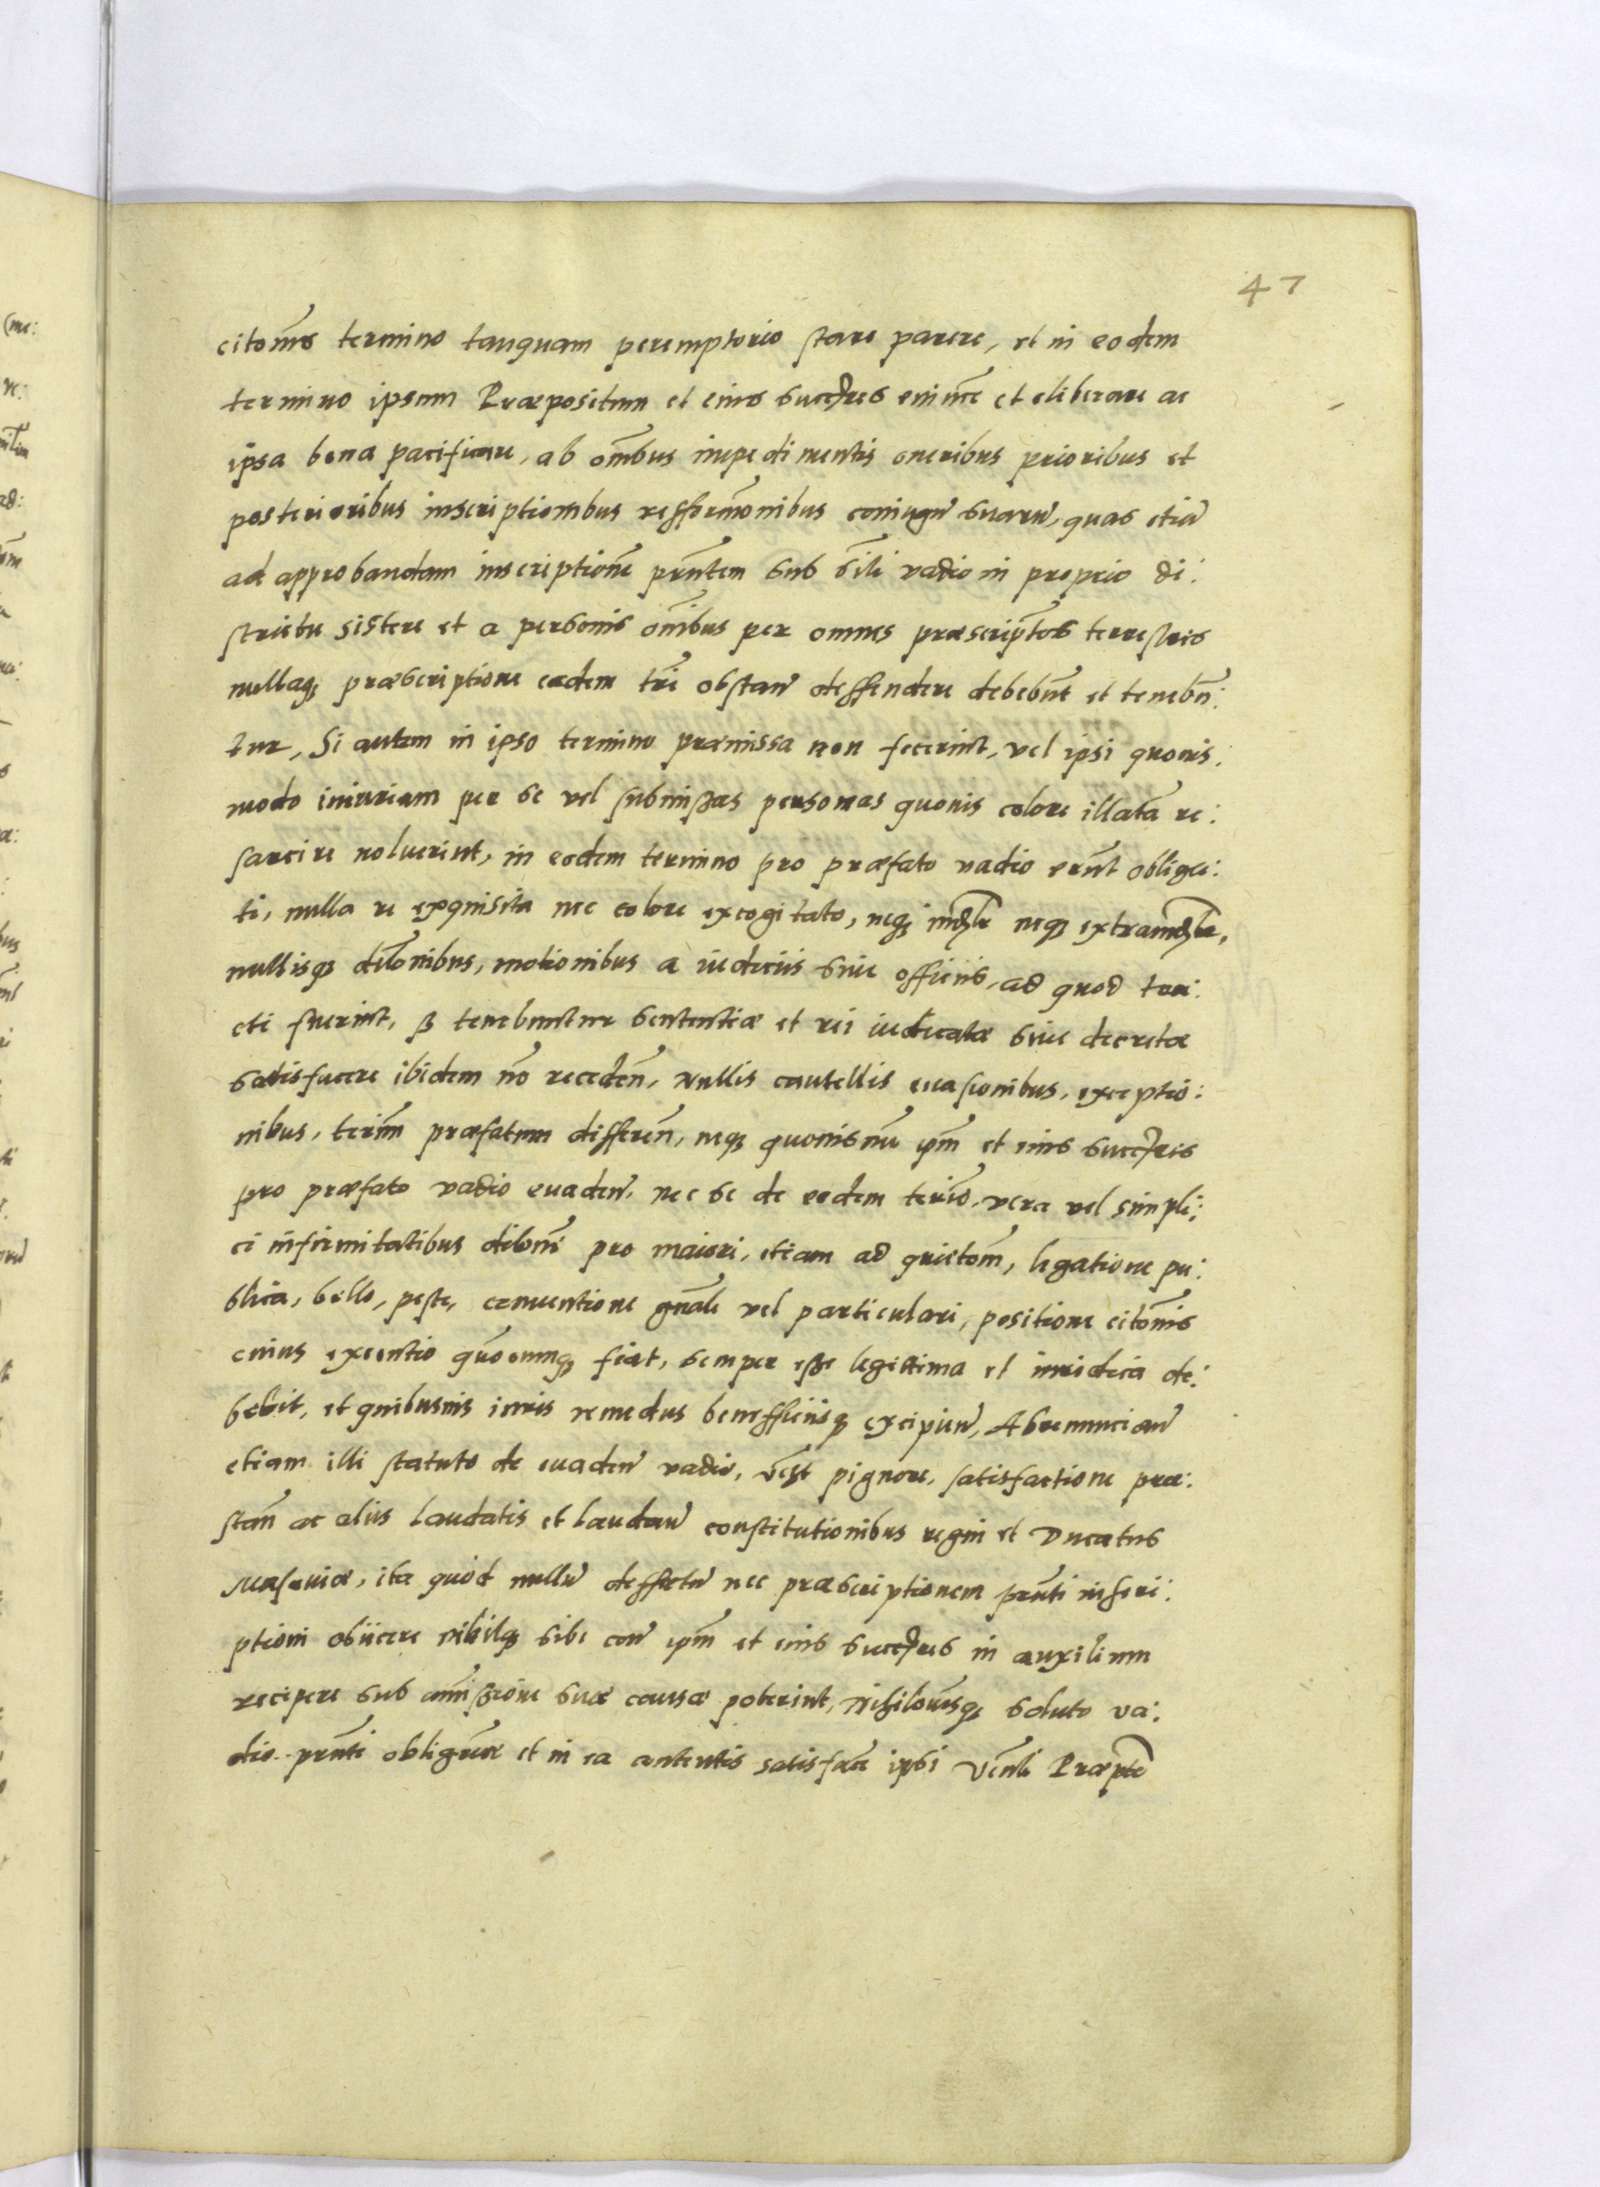 47
citōnis termino tanquam peremptorio stare parere, et in eodem
termino ipsum Præpositum et eius succ̄res eximere et eliberare ac
ipsa bona pacificare, ab om̄ibus impedimentis oneribus prioribus et
posterioribus inscriptionibus refformōnibus coniugū suarū, quas etiā
ad approbandam inscriptionē prn̄tem sub sīli vadio in proprio di:
strictu sistere et a personis om̄ibus per omnes præscriptōēs terrestres
nullaq; præscriptione eadem trī obstan̄ deffendere debebūt et tenebn̄:
tur, Si autem in ipso termino præmissa non fecerint, vel ipsi quouis:
modo iniuriam per se vel submissas personas quouis colore illatā re:
sarcire noluerint, in eodem termino pro præfato vadio erūt obliga:
ti, nulla re exquisita nec colore excogitato, neq; iudāle neq; extraiudāle,
nullisq; dilōnibus, motionibus a iudiciis siue officiis, ad quod tra:
cti fuerint, ß tenebuntur sententiæ et rei iudicatæ siue decretæ
satisfacere ibidem nō receden̄, Nullis cautellis euasionibus, exceptio:
nibus, terīm præfatum differen̄, neq; quouismō ipm̄ et eius succ̄res
pro præfato vadio euaden̄, nec se de eodem terīo, vera vel simpli:
ci infirmitatibus dilōne pro maiori, etiam ad quietōm, legatione pu:
blica, bello, peste, conuentione gnāli vel particulari, positione citōnis
cuius executio quōcumq; fiat, semper esse legittima et iuridica de:
bebit, et quibusuis iuris remediis benefficiisq; excipien̄, Abrenuncian̄
etiam illi statuto de euaden̄ vadio, pignore, satisfactione præ:
stan̄ ac aliis laudatis et laudan̄ constitutionibus regni et Ducatus
Masouiæ, ita quòd nullū deffectū nec præscriptionem prn̄ti inscri:
ptioni obiicere nihilq; sibi con̄ ipm̄ et eius succ̄res in auxilium
recipere sub amissione suæ causæ poterint, Nihilomīsq; soluto va:
dio prn̄ti obligōni et in ea contentis satisfacē ipsi Vēnli Præpto